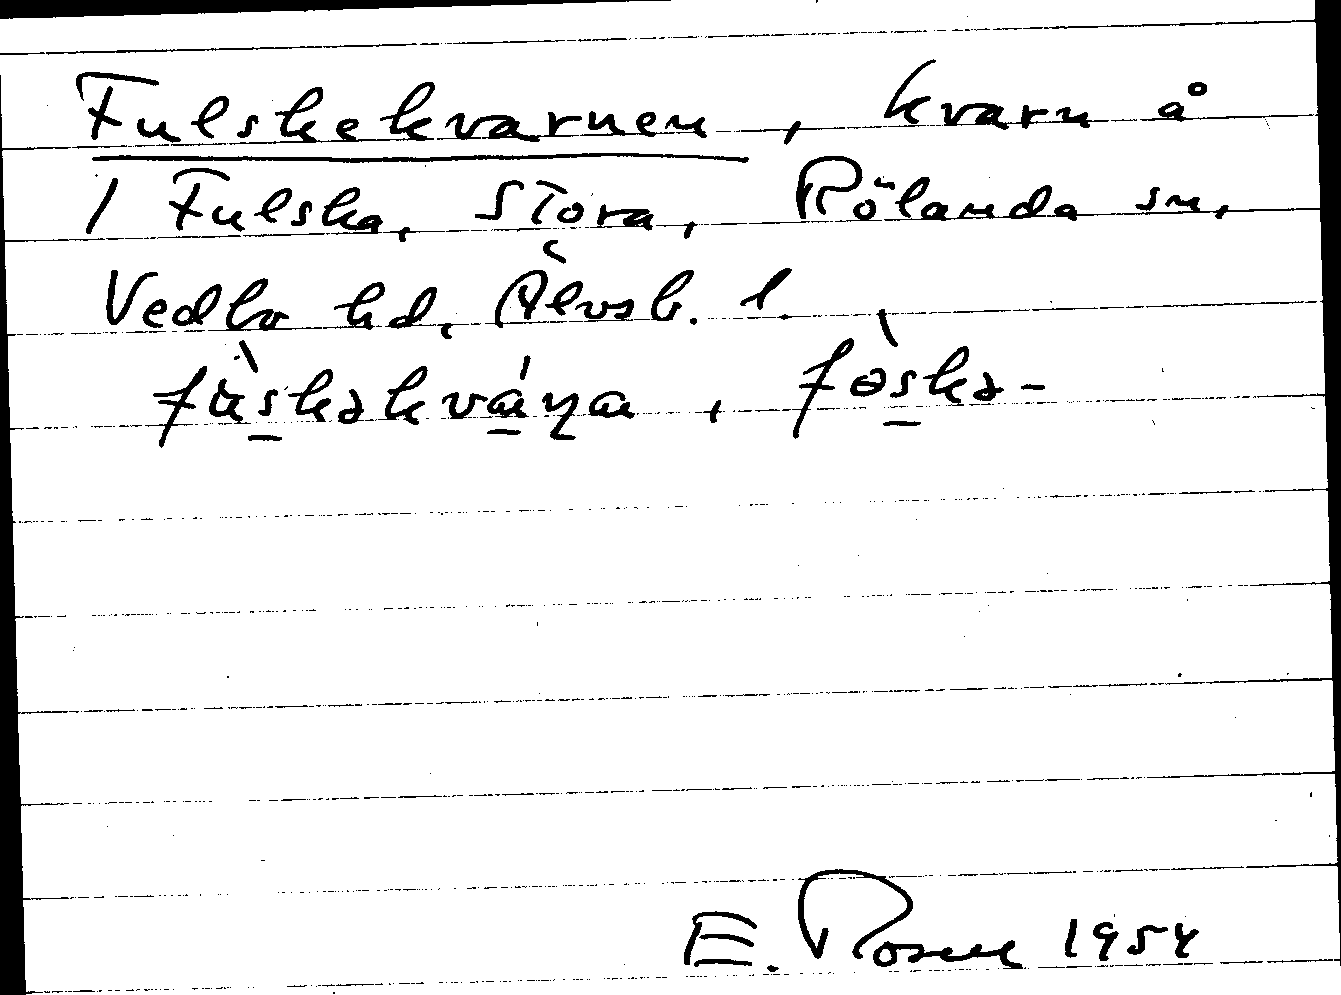 Fulskekvarnen, kvarn å
1 Fulska, Stora, Rölanda sn,
Vedbo hd, Älvsb. l.
fùskəkváɳa, fòskə-
E. Rosell 1954